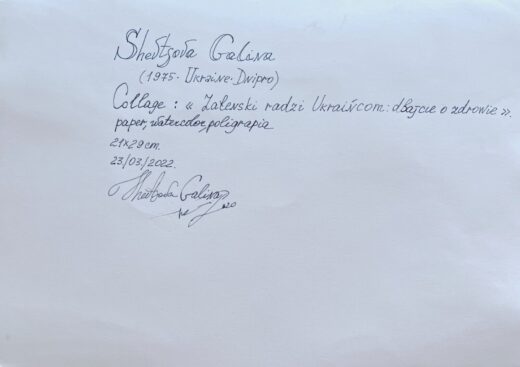 Shevtsova Galina
(1975. Ukraine. Dnipro)
Collage : « Zalewski radzi Ukraińcom: dbajcie o zdrowie ».
paper, watercolor, poligrapia
21x29cm.
23/03/2022.
Shevtsova Galina